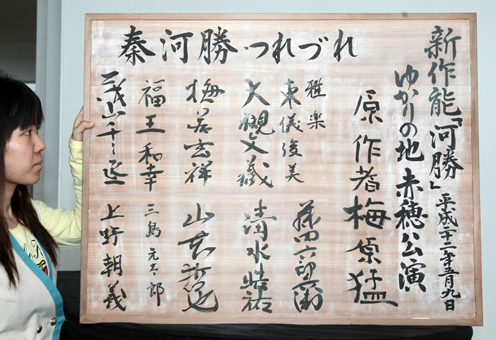 新作能「河勝」
平成二十二年五月九日
ゆかりの地 赤穂公演
原作者 梅原猛
秦河勝 つれづれ
雅楽
東儀俊美
藤田六郎兵衛
大槻文藏
清水皓祐
梅若玄祥
福王和幸
三島元太郎
上野朝義